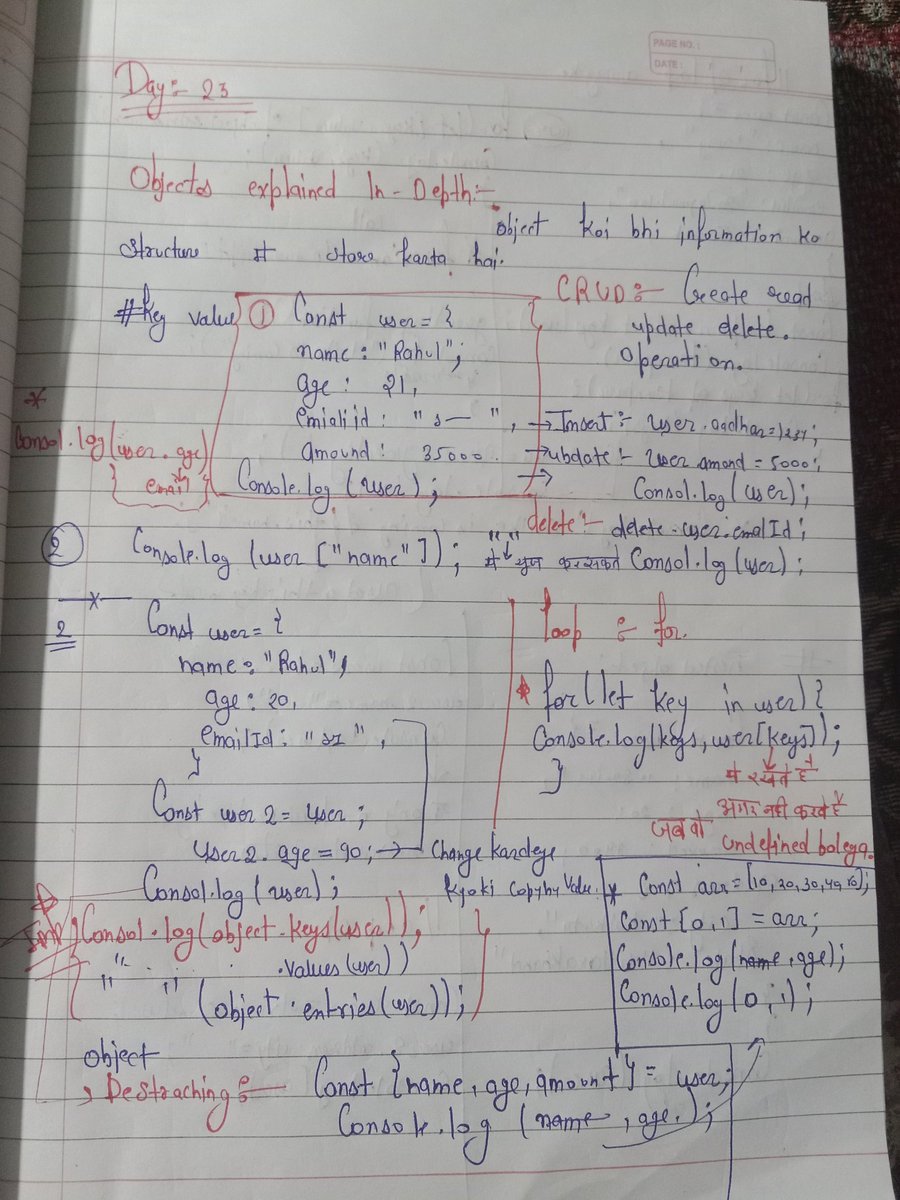 PAGE NO.:
DATE:
Day:- 23
Objectes explained In-Depth:-
object koi bhi information ko
structure में store karta hai.
#Key value
① Const user = {
name : "Rahul";
age : 21,
emiali id : "s— ",
amound : 35000.
}
Console.log (user);
*
Consol.log(user.age)
email
CRUD:- Create read
update delete.
operation.
→Insert:- user.aadhar=1234;
→ubdate:- user.amond = 5000;
→ Consol.log(user);
delete:- delete.user.emalId;
Consol.log(user);
② Console.log (user ["name"]); " " में यूज करसकते
2 Const user = {
name : "Rahul",
age : 20,
emailId : "sI",
}
Const user 2 = user;
user2.age = 90; → Change kardeye
Kyoki Copyby Value.
Consol.log(user);
loop :- for.
* for(let key in user){
Console.log(keys,user[keys]);
}
में रखते है
अगर नही करते है
जब वो undefined bolega.
Imp Consol.log(object.keys(user));
" " " .values(user))
" " (object.entries(user));
* Const arr = [10, 20, 30, 40, 50];
Const [0,1] = arr;
Console.log(name, age);
Console.log(0,1);
object
, Destraching:- Const {name, age, amount} = user;
Console.log (name, age.);